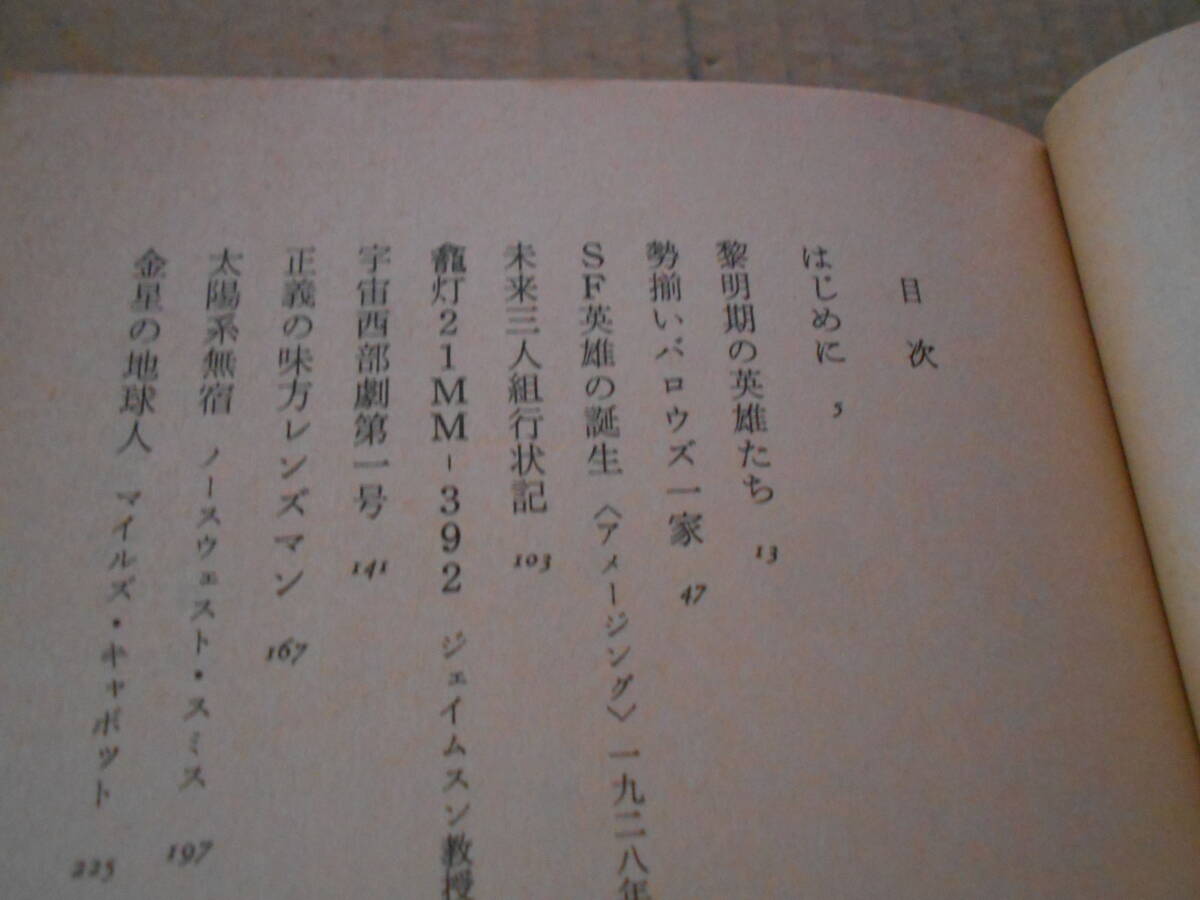 目次
はじめに 5
黎明期の英雄たち 13
勢揃いバロウズ一家 47
SF英雄の誕生 〈アメージング〉一九二八年
未来三人組行状記 103
龕灯21MM-392 ジェイムスン教授
宇宙西部劇第一号 141
正義の味方レンズマン 167
太陽系無宿 ノースウェスト・スミス 197
金星の地球人 マイルズ・キャボット 225